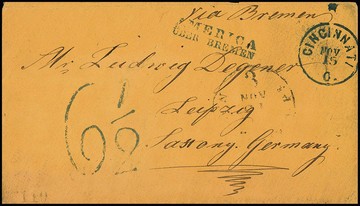 Via Bremen
AMERICA
ÜBER BREMEN
CINCINNATI
NOV
15
O.
Mr. Ludwig Degener
3
NOV
Leipzig
Saxony. Germany.